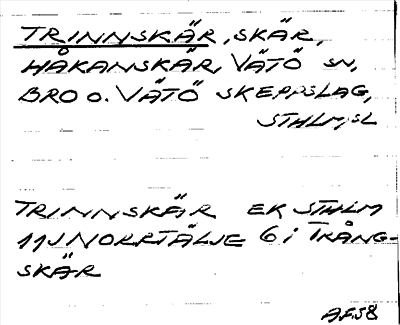 TRINNSKÄR, SKÄR,
HÅKANSKÄR, VÄTÖ SN,
BRO O. VÄTÖ SKEPPSLAG,
STHLMSL
TRINNSKÄR EK STHLM
11J NORRTÄLJE 6 i TRÅNG-
SKÄR
AF58